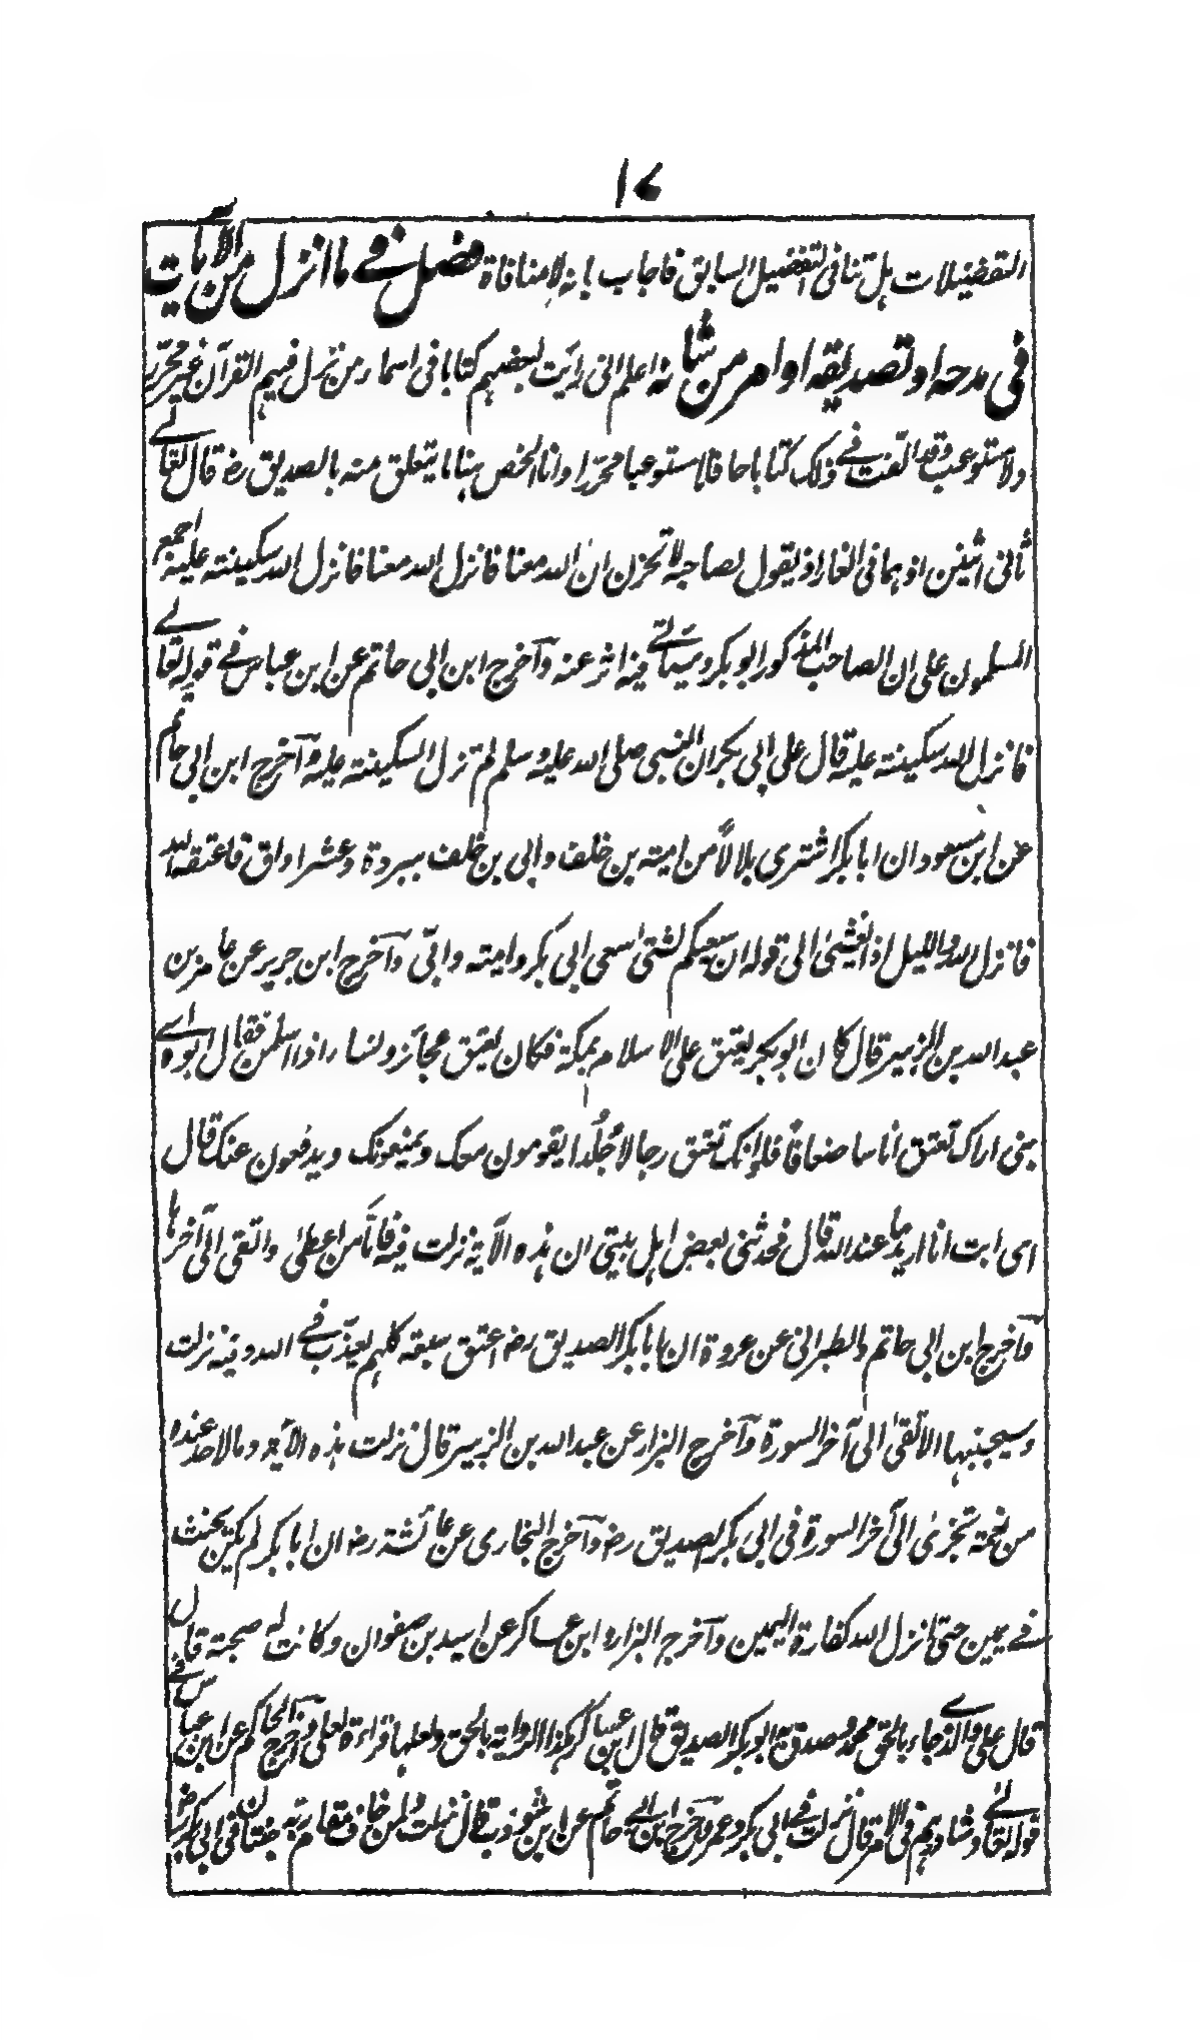 ١٧
التفضيلات هل تنافى التفضيل السابق فاجاب بانه لا منافاة فصل فے ما انزل من الآيات
فى مدحه او تصديقه او امر من شانه اعلم انى رايت لبعضهم كتابا فى اسماء من نزل فيهم القرآن غير محرّر
ولا مستوعب وقد الّفت فے ذلك كتابا حافلا مستوعبا محرّرا وانا الخص هنا ما يتعلق منه بالصديق رض قال تعالے
ثانى اثنين اذ هما فى الغار اذ يقول لصاحبه لا تحزن ان الله معنا فانزل الله معنا فانزل الله سكينته عليه اجمع
المسلمون على ان الصاحب المذكور ابو بكر وسياتے فيه اثر عنه وآخرج ابن ابى حاتم عن ابن عباس فے قوله تعالے
فانزل الله سكينته عليه قال على ابى بكر ان النبى صلى الله عليه وسلم لم تزل السكينته عليه وآخرج ابن ابى حاتم
عن ابن مسعود ان ابا بكر اشترى بلالاً من اميته بن خلف وابى بن خلف ببردة وعشر اواق فاعتقه لله
فانزل الله والليل اذا يغشىٰ الى قوله ان سعيكم لشتىٰ سعى ابى بكر واميته وابىّ وآخرج ابن جرير عن عامر بن
عبد الله بن الزبير قال كان ابو بكر يعتق على الاسلام بمكة فكان يعتق عجائز ونساء اذا اسلمن فقال ابوه اے
بنى اراك تعتق اناسا ضعافا فلو انك تعتق رجالا جُلُدا يقومون معك ويمنعونك ويدفعون عنك قال
اى ابت انا اريد ما عند الله قال فحدثنى بعض اهل بيتى ان هذه الآية نزلت فيه فامّا من اعطىٰ واتقى الى آخرها
وآخرج ابن ابى حاتم والطبرانى عن عروة ان ابا بكر الصديق رض اعتق سبعة كلهم يعذّب فے الله وفيه نزلت
وسيجنبها الاتقىٰ الى آخر السورة وآخرج البزار عن عبد الله بن الزبير قال نزلت هذه الآية وما لاحد عنده
من نعمة تجزىٰ الى آخر السورة فى ابى بكر الصديق رض وآخرج البخارى عن عائشة رض ان ابا بكر لم يكن يحنث
فے يمين حتى انزل الله كفارة اليمين وآخرج البزار وابن عساكر عن اسيد بن صفوان وكانت له صحبته قال
قال على والذے جاء بالحق محمد وصدق به ابو بكر الصديق قال ابن عساكر هكذا الرواية بالحق ولعلها قراءة لعلى وآخرج الحاكم عن ابن عباس فے
قوله تعالے وشاورهم فى الامر قال نزلت فے ابى بكر وعمر وآخرج ابن ابے حاتم عن ابن شوذب قال نزلت ولمن خاف مقام ربه جنتان فى ابى بكر رض